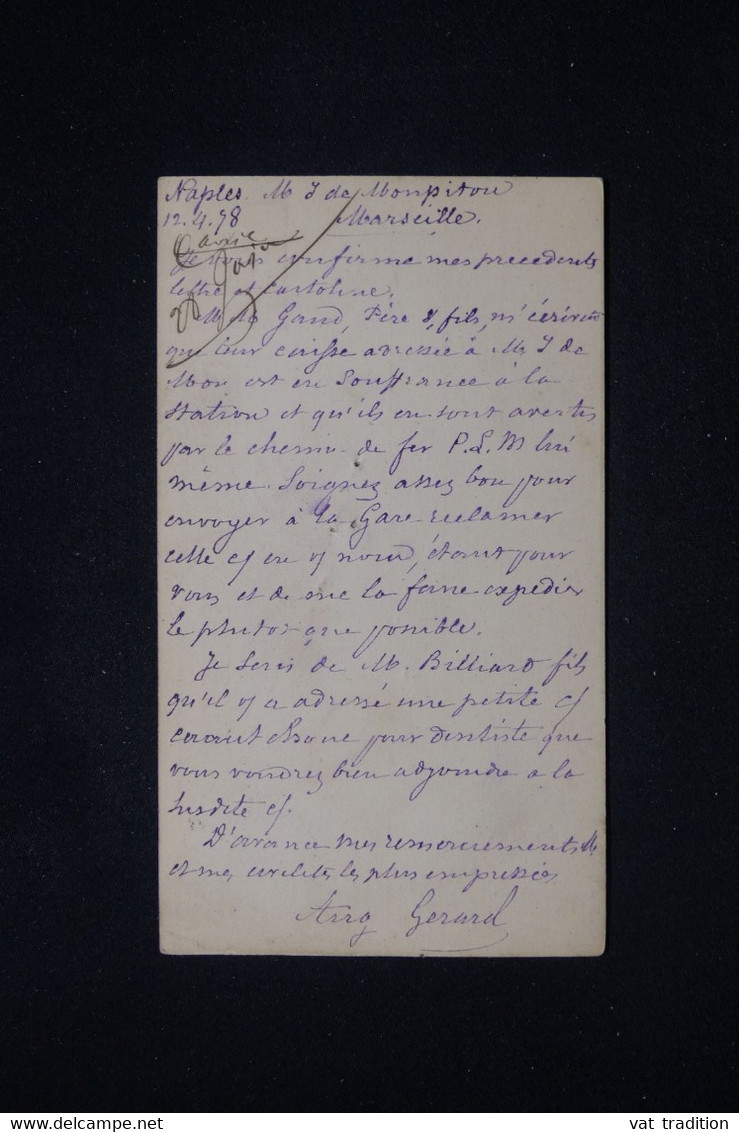 Naples. M J de Monpitou
12.4.78 Marseille.
Je vous confirme mes precedents
lettre et Cartoline.
MM Gand, Père & fils, m'écrivent
que leur caisse adressée à M. J de
Mon est en Souffrance à la
Station et qu'ils en sont avertis
par le chemin de fer P.L.M lui
même. Soignez assez bon pour
envoyer à la Gare reclamer
celle c/ en v/ nom, étant pour
vous et de me la faire expedier
le plutot que possible.
Je Seris de M. Billiard fils
qu'il v/ a adressé une petite c/
pour dentiste que
vous voudrez bien adjoindre a la
Susdite c/.
D'avance mes remerciements
et mes civilités les plus empressées
Aug Gerard
www.delcampe.net
vat tradition